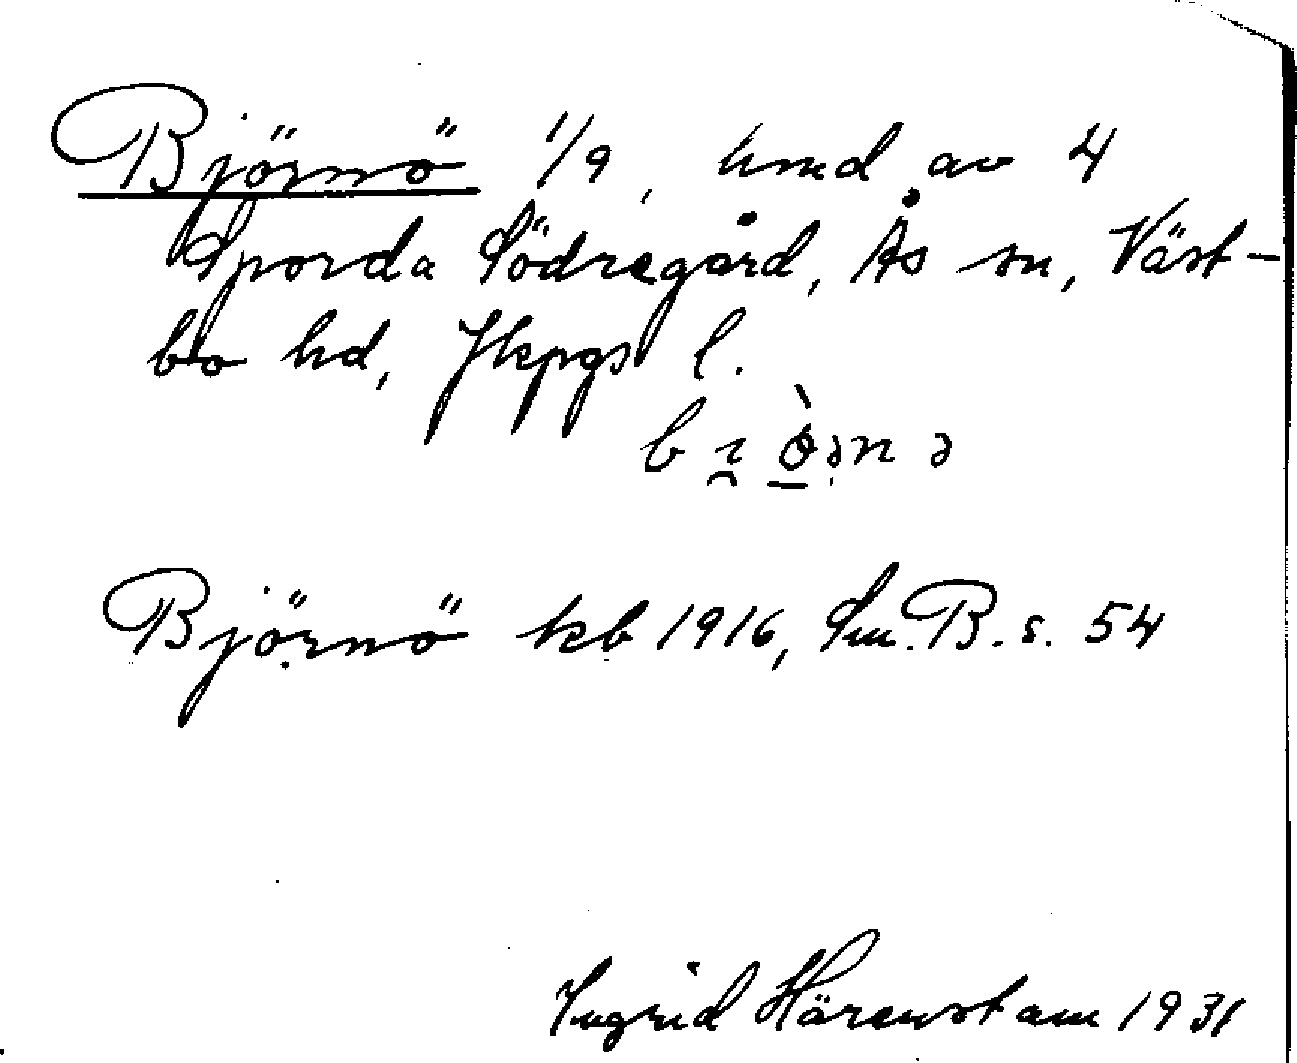 Björnö 1/9, hmd av 4
Sporda Södregård, Ås sn, Väst-
bo hd, Jkpgs l.
Björnö kb 1916, Sm. B. s. 54
Ingrid Härenstam 1931